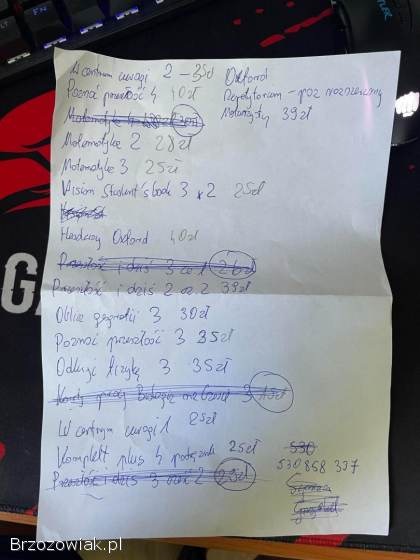 W centrum uwagi 2 – 35zł
Poznać przeszłość 4 40zł
Matematyka
Matematyka 2 28zł
Matematyka 3 25zł
Vision Student's book 3 x 2 25zł
Headway Oxford 40zł
Przeszłość i dziś 3 cz 1 26zł
Przeszłość i dziś 2 cz. 2 39zł
Oblicza geografii 3 30zł
Poznać przeszłość 3 35zł
Odkryć fizykę 3 35zł
Karty pracy Biologia na czasie 3 15zł
W centrum uwagi 1 25zł
Komplett plus 4 podręcznik 25zł
Przeszłość i dziś 3 część 2
Oxford
Repetytorium – poz rozszerzony
Maturzysty 39zł
530
530 858 337
BRZOZOWIAK.PL